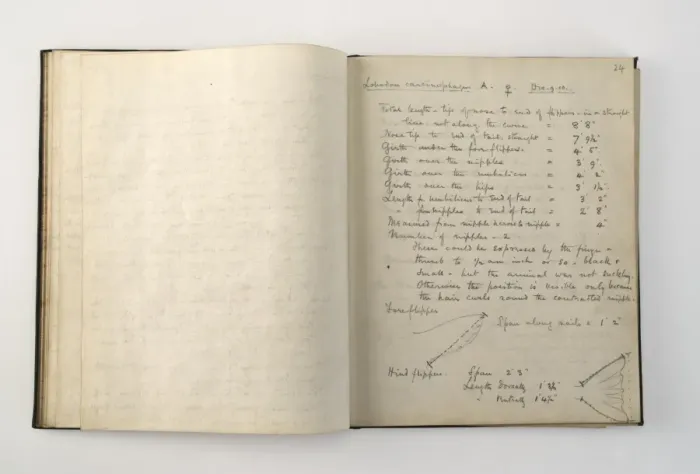 24
Lobodon carcinophagus A. ♀. Dec. 9. 10.
Total length - tip of nose to end of flippers - in a straight
line not along the curve = 8' 8"
Nose tip to end of tail straight = 7' 9½"
Girth under the fore flippers = 4' 5"
Girth over the nipples = 3' 9"
Girth over the umbilicus = 4' 2"
Girth over the hips = 3' 1½"
Length fr. umbilicus to end of tail = 3' 2"
" from nipples to end of tail = 2' 8"
Measured from nipple across to nipple = 4"
Number of nipples - 2
These could be expressed by the finger &
thumb to ½ an inch or so - black &
small - but the animal was not suckling.
Otherwise the position is visible only because
the hair curls round the contracted nipple.
Fore flipper
Span along nails = 1' 2"
Hind flippers. Span 2' 3"
Length Dorsally
" Ventrally